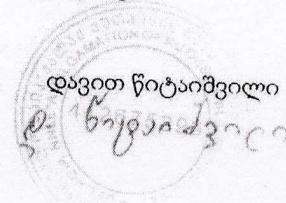 დავით წიტაიშვილი
დ. წიტაიშვილი